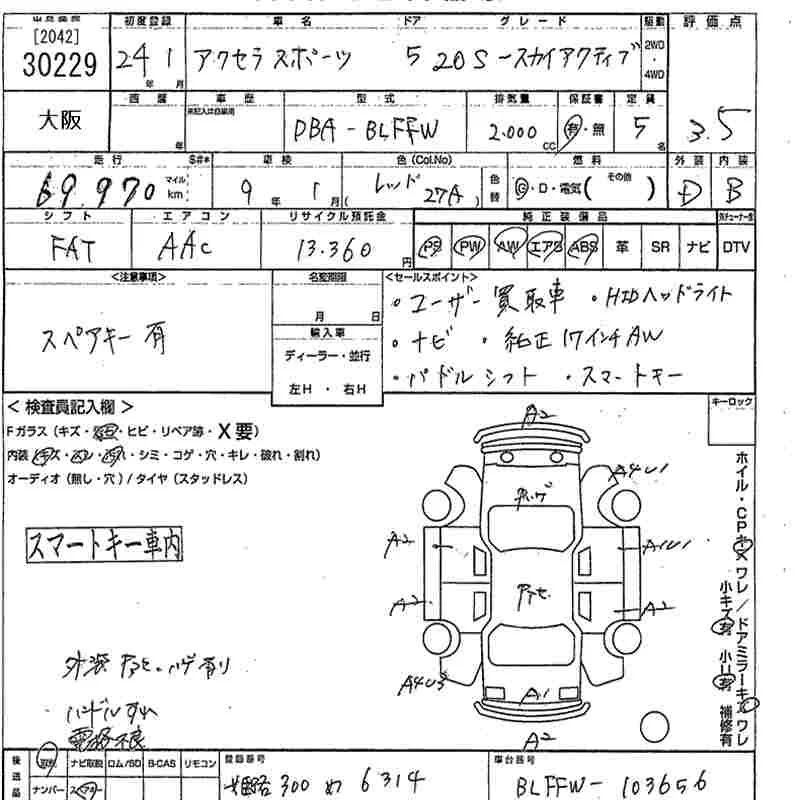 [2042]
30229
初度登録 車名 ドア グレード 駆動 評価点
24年 1月 アクセラ スポーツ 5 20S-スカイアクティブ 2WD・4WD
3.5
大阪
西暦 車歴 型式 排気量 保証書 定員
年 未記入は自家用 DBA-BLFFW 2.000cc 有・無 5名
走行 S#* 車検 色(Col.No) 燃料 外装 内装
69.970 マイル km 9年 1月 ( レッド 27A ) 色替 G・D・電気( その他 ) D B
シフト エアコン リサイクル預託金 純正装備品
FAT AAC 13.360円 PS PW AW エアB ABS 革 SR ナビ DTV
<注意事項> 名変期限 <セールスポイント>
スペアキー有
月 日
輸入車
ディーラー・並行
左H・右H
・ユーザー買取車 ・HIDヘッドライト
・ナビ ・純正17インチAW
・パドルシフト ・スマートキー
<検査員記入欄>
キーロック
Fガラス(キズ・飛石・ヒビ・リペア跡・X要)
内装(キズ・スレ・汚れ・シミ・コゲ・穴・キレ・破れ・割れ)
オーディオ(無し・穴)/タイヤ(スタッドレス)
スマートキー車内
A2
A4U1
A2
A1U1
A2
A2
A4U3
A1
A2
ホイル・CPキズワレ/ドアミラーキズワレ
小キズ有 小U有 補修有
外装 アセ・ハゲ有り
ハンドルすれ
後送品 ナビ取説 ロム/SD B-CAS リモコン 登録番号 車台番号
ナンバー スペアキー 姫路 300 め 6314 BLFFW-103656